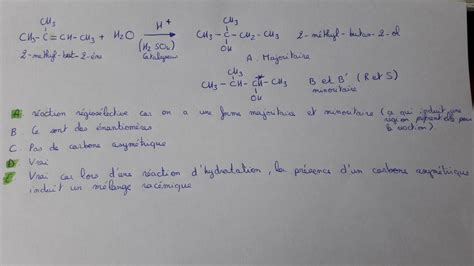 CH₃ H⁺ CH₃
CH₃-C=CH-CH₃ + H₂O → CH₃-C-CH₂-CH₃ 2-méthyl-butan-2-ol
2-méthyl-but-2-ène (H₂SO₄) OH
Catalyseur A. Majoritaire
CH₃
CH₃-CH-CH-CH₃ B et B' (R et S)
OH minoritaire
A. réaction régiosélective car on a une forme majoritaire et minoritaire (ce qui induit une
région préférentielle pour la réaction)
B. Ce sont des énantiomères
C. Pas de carbone asymétrique
D. Vrai
E. Vrai car lors d'une réaction d'hydratation, la présence d'un carbone asymétrique
induit un mélange racémique